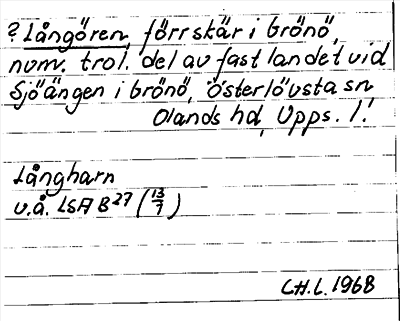 ? Långören, förr skär i Grönö,
numv. trol. del av fastlandet vid
Sjöängen i Grönö, Österlövsta sn
Olands hd, Upps. l.
Långharn
u.å. LSA B27 (13/7)
C.H.L. 1968